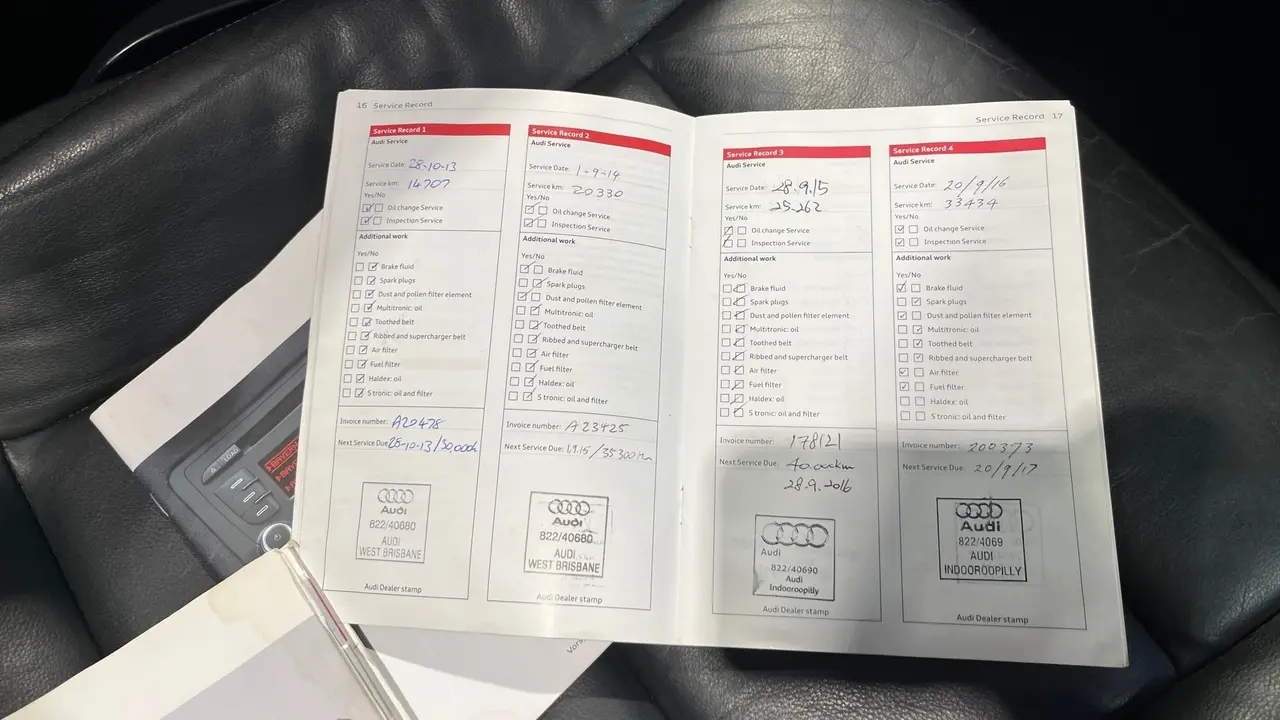 16 Service Record
Service Record 1
Audi Service
Service Date: 28-10-13
Service km: 14707
Yes/No
Oil change Service
Inspection Service
Additional work
Yes/No
Brake fluid
Spark plugs
Dust and pollen filter element
Multitronic: oil
Toothed belt
Ribbed and supercharger belt
Air filter
Fuel filter
Haldex: oil
S tronic: oil and filter
Invoice number: A20478
Next Service Due: 28-10-13/30,000k
Audi
822/40680
AUDI
WEST BRISBANE
Audi Dealer stamp
Service Record 2
Audi Service
Service Date: 1-9-14
Service km: 20330
Yes/No
Oil change Service
Inspection Service
Additional work
Yes/No
Brake fluid
Spark plugs
Dust and pollen filter element
Multitronic: oil
Toothed belt
Ribbed and supercharger belt
Air filter
Fuel filter
Haldex: oil
S tronic: oil and filter
Invoice number: A23425
Next Service Due: 1.9.15/35300km
Audi
822/40680
AUDI
WEST BRISBANE
Audi Dealer stamp
Service Record 17
Service Record 3
Audi Service
Service Date: 28.9.15
Service km: 25.262
Yes/No
Oil change Service
Inspection Service
Additional work
Yes/No
Brake fluid
Spark plugs
Dust and pollen filter element
Multitronic: oil
Toothed belt
Ribbed and supercharger belt
Air filter
Fuel filter
Haldex: oil
S tronic: oil and filter
Invoice number: 178121
Next Service Due: 40.000km
28.9.2016
Audi
822/40690
Audi
Indooroopilly
Audi Dealer stamp
Service Record 4
Audi Service
Service Date: 20/9/16
Service km: 33434
Yes/No
Oil change Service
Inspection Service
Additional work
Yes/No
Brake fluid
Spark plugs
Dust and pollen filter element
Multitronic: oil
Toothed belt
Ribbed and supercharger belt
Air filter
Fuel filter
Haldex: oil
S tronic: oil and filter
Invoice number: 200373
Next Service Due: 20/9/17
Audi
822/4069
AUDI
INDOOROOPILLY
Audi Dealer stamp
LOAD